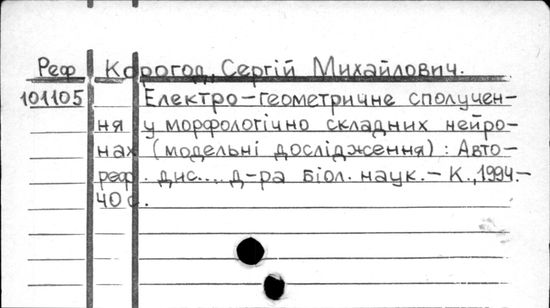 Реф Корогод, Сергій Михайлович.
101105 Електро-геометричне сполучен-
ня у морфологічно складних нейро-
нах (модельні дослідження): Авто-
реф. дис.... д-ра біол. наук. - К., 1994.-
40 с.